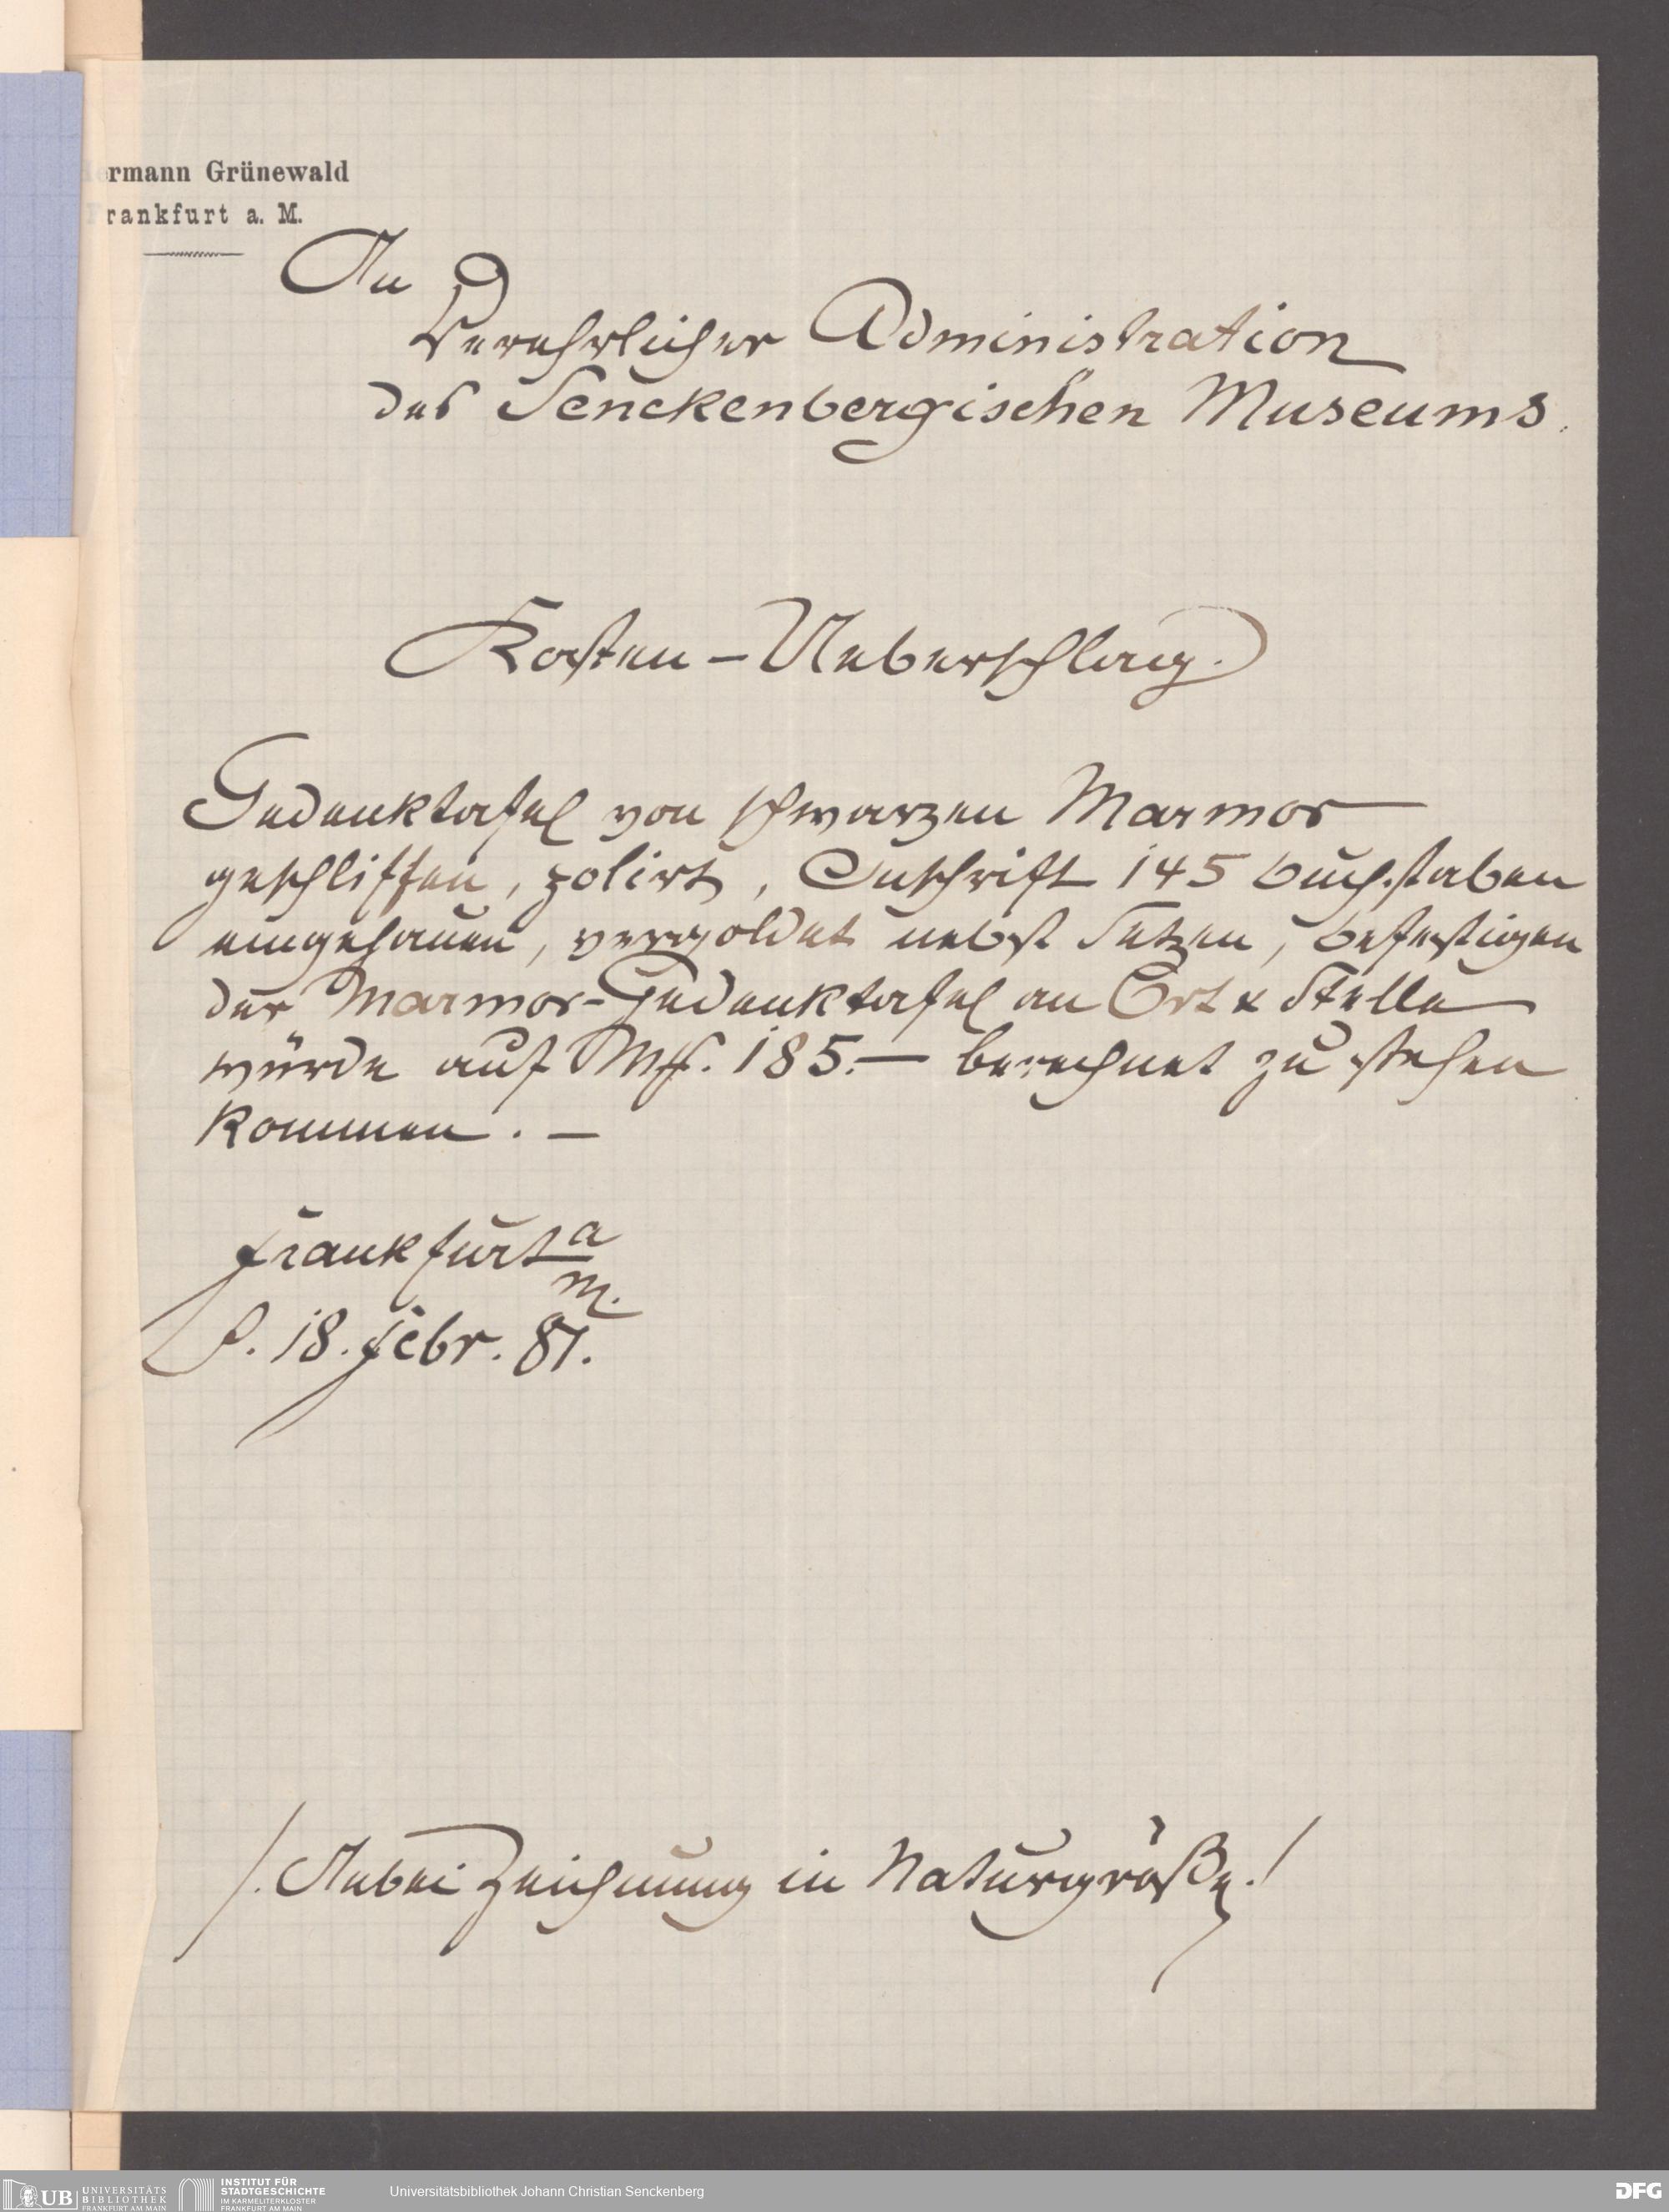 Hermann Grünewald
Frankfurt a. M.
An
Verehrlicher Administration
des Senckenbergischen Museums.
Kosten-Ueberschlag.
Gedenktafel von schwarzen Marmor
geschliffen, polirt, Inschrift 145 buchstaben
eingehauen, vergoldet nebst Setzen, befestigen
der Marmor-Gedenktafel an Ort & Stelle
würde auf Mk. 185.— berechnet zu stehen
kommen. —
Frankfurt a
M.
d. 18. Febr. 87.
/. Anbei Zeichnung in Naturgröße ./
UB UNIVERSITÄTS
BIBLIOTHEK
FRANKFURT AM MAIN
INSTITUT FÜR
STADTGESCHICHTE
IM KARMELITERKLOSTER
FRANKFURT AM MAIN
Universitätsbibliothek Johann Christian Senckenberg
DFG